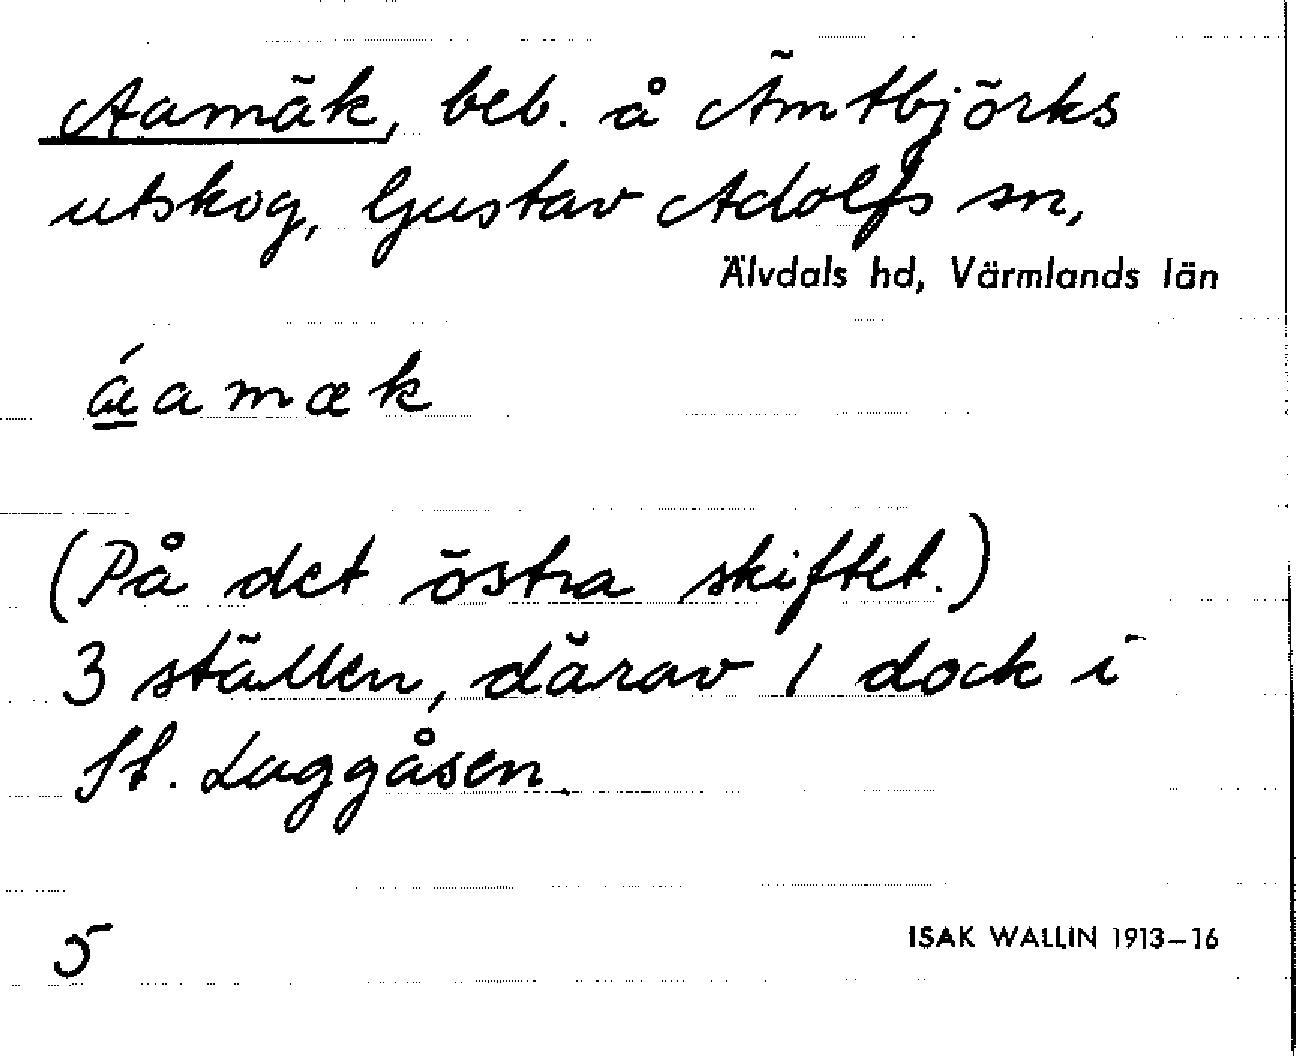 Aamäk, beb. å Ämtbjörks
utskog, Gustav Adolfs sn,
Älvdals hd, Värmlands län
á̱amæk
(På det östra skiftet.)
3 ställen, därav 1 dock i
St. Laggåsen.
5
ISAK WALLIN 1913–16